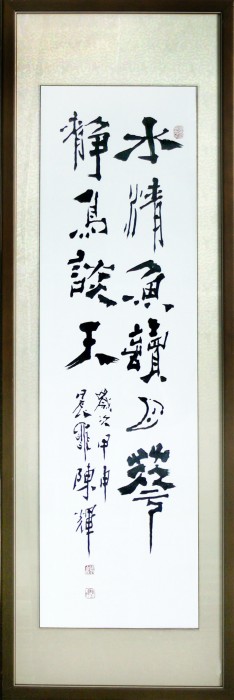 水清魚讀月華
靜鳥談天
歲次甲申
陳輝